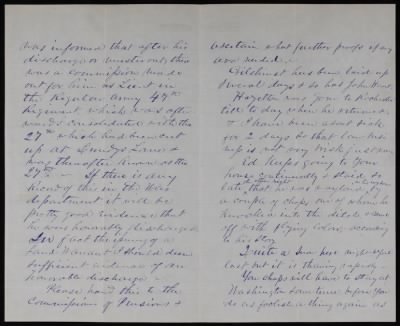 was informed that after his
discharge or muster out, there
was a commission made
out for him as Lieut in
the Regular Army 47th
Regiment which was after
ward consolidated with the
27th which had been cut
up at Lundys Lane &
was thereafter known as the
27th — If there is any
record of this in the War
department it will be
pretty good evidence that
he was honorably discharged
In fact the issuing of a
Land Warrant I should deem
sufficient evidence of an
honorable discharge —
Please hand this to the
Commissioner of Pensions &
ascertain what further proof if any
are needed.
Gilchrist has been laid up
several days & so has John
Hazelton was gone to Rochester
till to day when he returned
& I have been about sick
for 2 days so that law
up is not very brisk just now
Ed keeps going to your
house continually & staid so
late that he was
a couple of chaps one of whom he
knocked into the ditch & came
off with flying colors according
to his story
I write a
last but it is thawing today
You chaps will have to stay at
Washington some time before you
do as foolish a thing again as